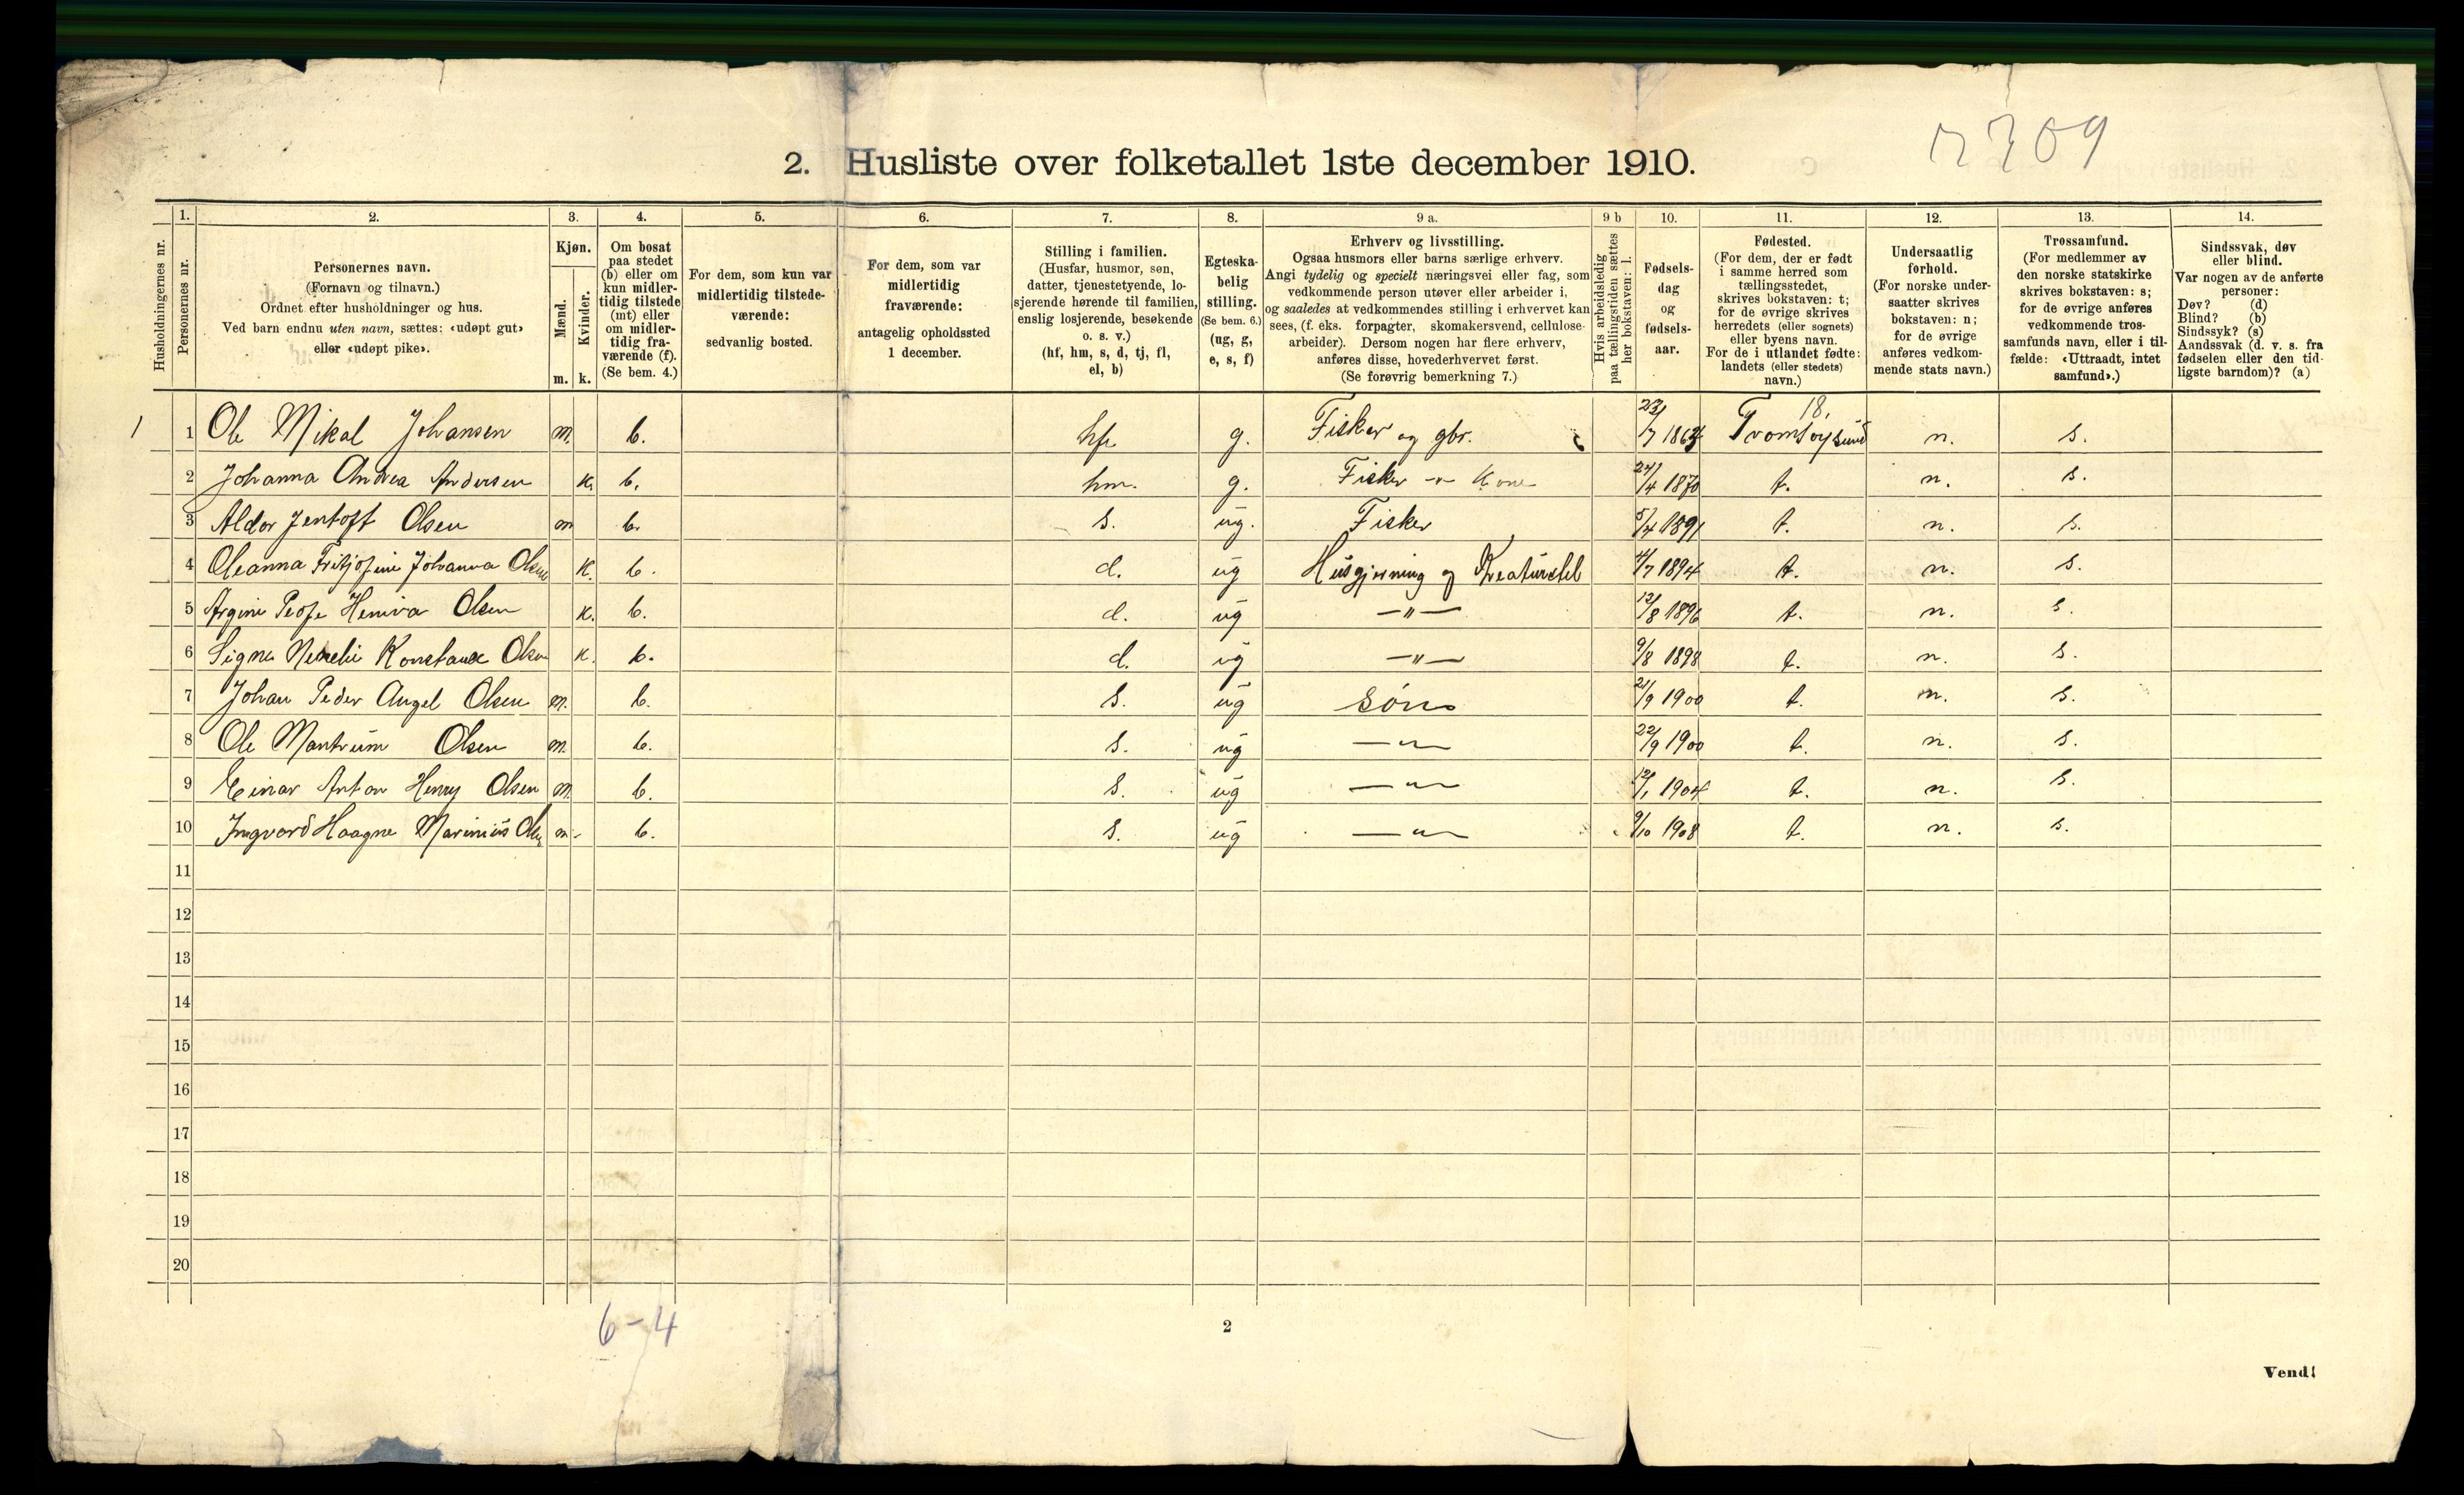 7709
2. Husliste over folketallet 1ste december 1910.
Husholdningernes nr.
1.
Personernes nr.
2.
Personernes navn.
(Fornavn og tilnavn.)
Ordnet efter husholdninger og hus.
Ved barn endnu uten navn, sættes: «udøpt gut»
eller «udøpt pike».
3.
Kjøn.
Mænd.
Kvinder.
m. k.
4.
Om bosat
paa stedet
(b) eller om
kun midler-
tidig tilstede
(mt) eller
om midler-
tidig fra-
værende (f).
(Se bem. 4.)
5.
For dem, som kun var
midlertidig tilstede-
værende:
sedvanlig bosted.
6.
For dem, som var
midlertidig
fraværende:
antagelig opholdssted
1 december.
7.
Stilling i familien.
(Husfar, husmor, søn,
datter, tjenestetyende, lo-
sjerende hørende til familien,
enslig losjerende, besøkende
o. s. v.)
(hf, hm, s, d, tj, fl,
el, b)
8.
Egteska-
belig
stilling.
(Se bem. 6.)
(ug, g,
e, s, f)
9 a.
Erhverv og livsstilling.
Ogsaa husmors eller barns særlige erhverv.
Angi tydelig og specielt næringsvei eller fag, som
vedkommende person utøver eller arbeider i,
og saaledes at vedkommendes stilling i erhvervet kan
sees, (f. eks. forpagter, skomakersvend, cellulose-
arbeider). Dersom nogen har flere erhverv,
anføres disse, hovederhvervet først.
(Se forøvrig bemerkning 7.)
9 b
Hvis arbeidsledig
paa tællingstiden sættes
her bokstaven: l.
10.
Fødsels-
dag
og
fødsels-
aar.
11.
Fødested.
(For dem, der er født
i samme herred som
tællingsstedet,
skrives bokstaven: t;
for de øvrige skrives
herredets (eller sognets)
eller byens navn.
For de i utlandet fødte:
landets (eller stedets)
navn.)
12.
Undersaatlig
forhold.
(For norske under-
saatter skrives
bokstaven: n;
for de øvrige
anføres vedkom-
mende stats navn.)
13.
Trossamfund.
(For medlemmer av
den norske statskirke
skrives bokstaven: s;
for de øvrige anføres
vedkommende tros-
samfunds navn, eller i til-
fælde: «Uttraadt, intet
samfund».)
14.
Sindssvak, døv
eller blind.
Var nogen av de anførte
personer:
Døv? (d)
Blind? (b)
Sindssyk? (s)
Aandssvak (d. v. s. fra
fødselen eller den tid-
ligste barndom)? (a)
1 1 Ole Mikal Johansen m. b. hf g. Fisker og gbr. 23/7 1863 18, Tromsøysund n. s.
2 Johanna Andrea Andersen k. b. hm. g. Fisker -"- Kone 24/4 1870 t. n. s.
3 Aldor Jentoft Olsen m b. s. ug. Fisker 5/4 1891 t. n. s.
4 Oleanna Fritjofine Johanna Olsen k. b. d. ug Husgjerning og Kreaturstel 4/7 1894 t. n. s.
5 Olsen k. b. d. ug -"- 12/8 1896 t. n. s.
6 Signe Konstanse Olsen k. b. d. ug -"- 9/8 1898 t. n. s.
7 Johan Peder Angel Olsen m. b. s. ug søn 21/9 1900 t. n. s.
8 Ole Olsen m. b. s. ug -"- 22/9 1900 t. n. s.
9 Einar Anton Henry Olsen m. b. s. ug -"- 12/1 1904 t. n. s.
10 Ingvard Haagne Marinius Olsen m. b. s. ug -"- 9/10 1908 t. n. s.
11
12
13
14
15
16
17
18
19
20
6-4
2
Vend!